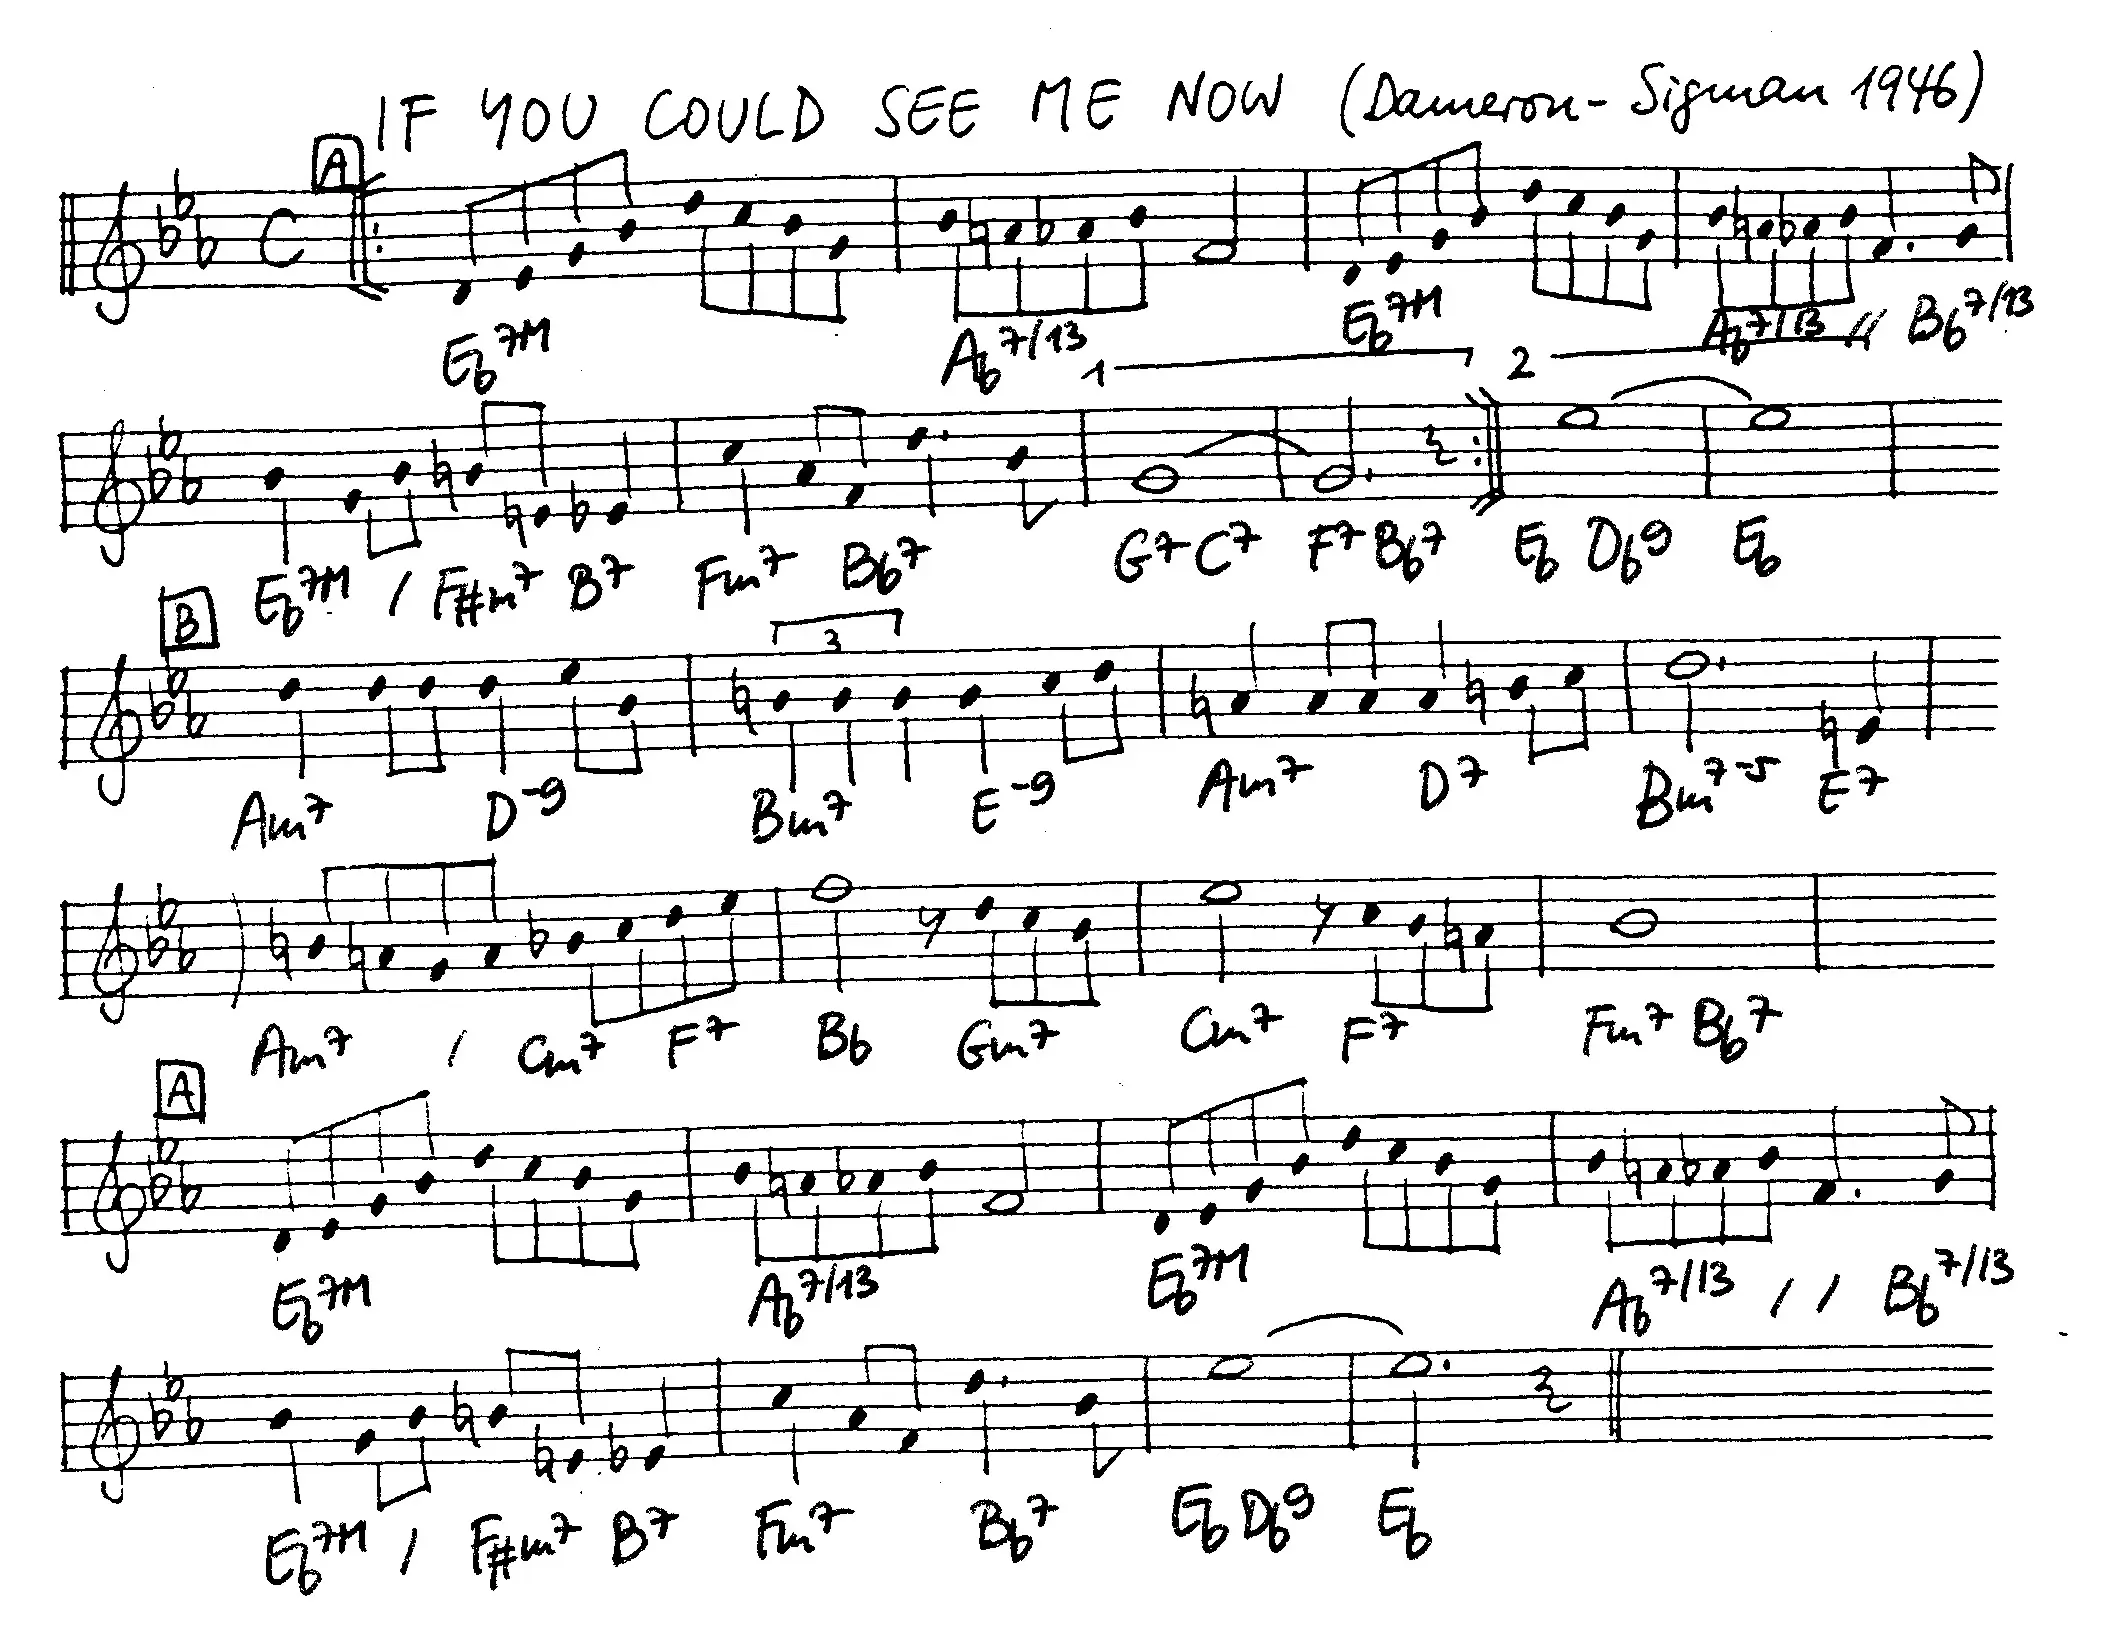 IF YOU COULD SEE ME NOW (Dameron-Sigman 1946)
A
C
Eb7M Ab7/13 Eb7M Ab7/13 // Bb7/13
1 2
Eb7M / F#m7 B7 Fm7 Bb7 G7 C7 F7 Bb7 Eb Db9 Eb
B
3
Am7 D-9 Bm7 E-9 Am7 D7 Bm7-5 E7
Am7 / Cm7 F7 Bb Gm7 Cm7 F7 Fm7 Bb7
A
Eb7M Ab7/13 Eb7M Ab7/13 / / Bb7/13
Eb7M / F#m7 B7 Fm7 Bb7 Eb Db9 Eb